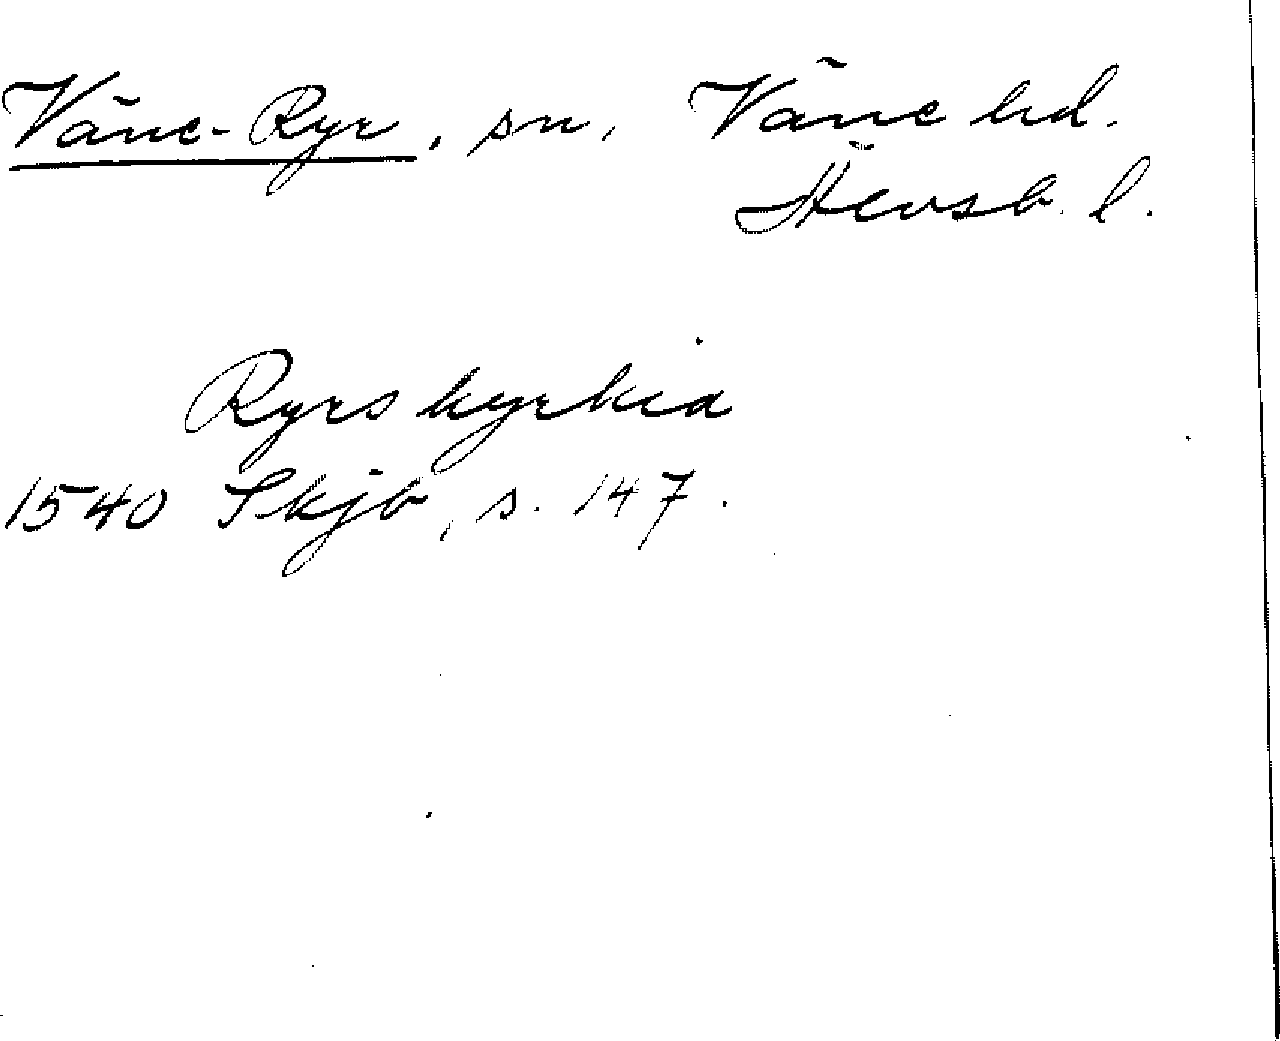 Väne-Ryr, sn, Väne hd.
Älvsb. l.
Ryrs kyrkia
1540 Skjb, s. 147.